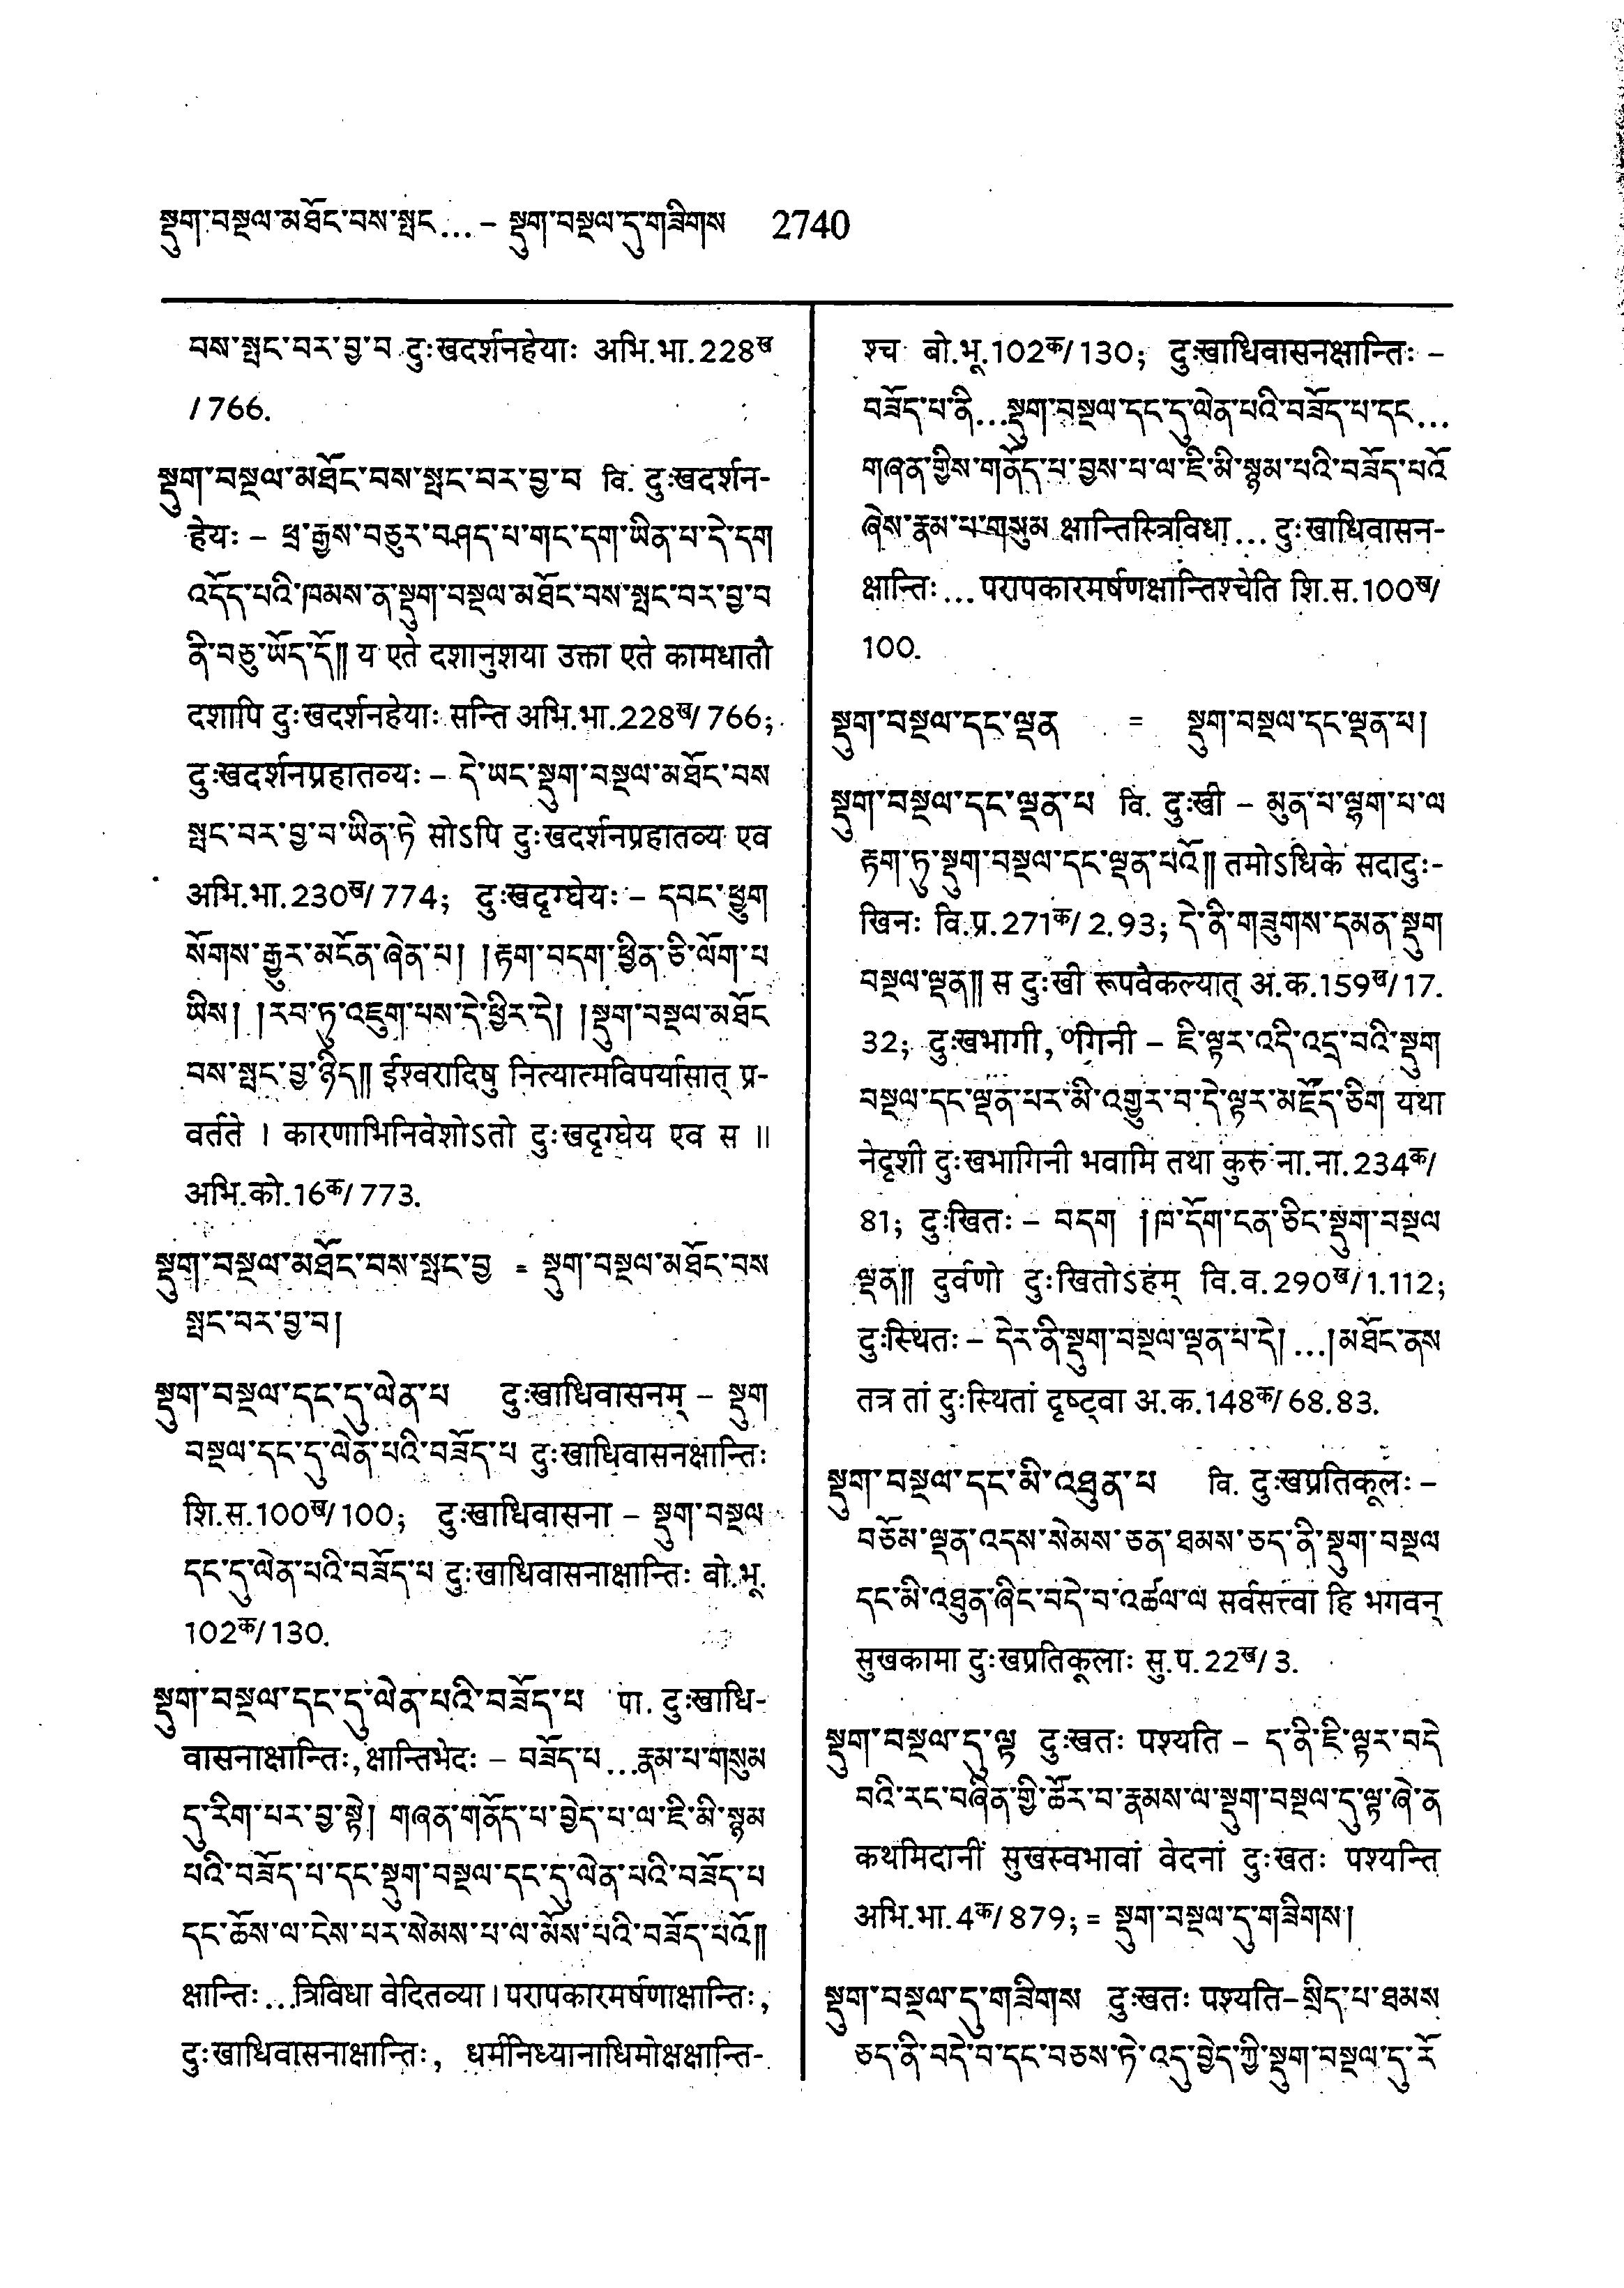 སྡུག་བསྔལ་མཐོང་བས་སྤང... – སྡུག་བསྔལ་དུ་གཟིགས 2740
བས་སྤང་བར་བྱ་བ दुःखदर्शनहेयाः अभि.भा.228ख
/766.
སྡུག་བསྔལ་མཐོང་བས་སྤང་བར་བྱ་བ वि. दुःखदर्शन-
हेयः – ཕྲ་རྒྱས་བཅུར་བཤད་པ་གང་དག་ཡིན་པ་དེ་དག
འདོད་པའི་ཁམས་ན་སྡུག་བསྔལ་མཐོང་བས་སྤང་བར་བྱ་བ
ནི་བཅུ་ཡོད་དོ༎ य एते दशानुशया उक्ता एते कामधातौ
दशापि दुःखदर्शनहेयाः सन्ति अभि.भा.228ख/766;
दुःखदर्शनप्रहातव्यः – དེ་ཡང་སྡུག་བསྔལ་མཐོང་བས
སྤང་བར་བྱ་བ་ཡིན་ཏེ सोऽपि दुःखदर्शनप्रहातव्य एव
अभि.भा.230ख/774; दुःखदृग्घेयः – དབང་ཕྱུག
སོགས་རྒྱུར་མངོན་ཞེན་པ། །རྟག་བདག་ཕྱིན་ཅི་ལོག་པ
ཡིས། །རབ་ཏུ་འཇུག་པས་དེ་ཕྱིར་དེ། །སྡུག་བསྔལ་མཐོང
བས་སྤང་བྱ་ཉིད༎ ईश्वरादिषु नित्यात्मविपर्यासात् प्र-
वर्तते । कारणाभिनिवेशोऽतो दुःखदृग्घेय एव स ॥
अभि.को.16क/773.
སྡུག་བསྔལ་མཐོང་བས་སྤང་བྱ = སྡུག་བསྔལ་མཐོང་བས
སྤང་བར་བྱ་བ།
སྡུག་བསྔལ་དང་དུ་ལེན་པ दुःखाधिवासनम् – སྡུག
བསྔལ་དང་དུ་ལེན་པའི་བཟོད་པ दुःखाधिवासनक्षान्तिः
शि.स.100ख/100; दुःखाधिवासना – སྡུག་བསྔལ
དང་དུ་ལེན་པའི་བཟོད་པ दुःखाधिवासनाक्षान्तिः बो.भू.
102क/130.
སྡུག་བསྔལ་དང་དུ་ལེན་པའི་བཟོད་པ पा. दुःखाधि-
वासनाक्षान्तिः, क्षान्तिभेदः – བཟོད་པ...རྣམ་པ་གསུམ
དུ་རིག་པར་བྱ་སྟེ། གཞན་གནོད་པ་བྱེད་པ་ལ་ཇི་མི་སྙམ
པའི་བཟོད་པ་དང་སྡུག་བསྔལ་དང་དུ་ལེན་པའི་བཟོད་པ
དང་ཆོས་ལ་ངེས་པར་སེམས་པ་ལ་མོས་པའི་བཟོད་པའོ༎
क्षान्तिः...त्रिविधा वेदितव्या। परापकारमर्षणाक्षान्तिः,
दुःखाधिवासनाक्षान्तिः, धर्मनिध्यानाधिमोक्षक्षान्ति-
श्च बो.भू.102क/130; दुःखाधिवासनक्षान्तिः –
བཟོད་པ་ནི...སྡུག་བསྔལ་དང་དུ་ལེན་པའི་བཟོད་པ་དང...
གཞན་གྱིས་གནོད་པ་བྱས་པ་ལ་ཇི་མི་སྙམ་པའི་བཟོད་པའོ
ཞེས་རྣམ་པ་གསུམ क्षान्तिस्त्रिविधा... दुःखाधिवासन-
क्षान्तिः... परापकारमर्षणक्षान्तिश्चेति शि.स.100ख/
100.
སྡུག་བསྔལ་དང་ལྡན = སྡུག་བསྔལ་དང་ལྡན་པ།
སྡུག་བསྔལ་དང་ལྡན་པ वि. दुःखी – མུན་པ་ལྷག་པ་ལ
རྟག་ཏུ་སྡུག་བསྔལ་དང་ལྡན་པའོ༎ तमोऽधिके सदादुः-
खिनः वि.प्र.271क/2.93; དེ་ནི་གཟུགས་དམན་སྡུག
བསྔལ་ལྡན༎ स दुःखी रूपवैकल्यात् अ.क.159ख/17.
32; दुःखभागी, ०गिनी – ཇི་ལྟར་འདི་འདྲ་བའི་སྡུག
བསྔལ་དང་ལྡན་པར་མི་འགྱུར་བ་དེ་ལྟར་མཛོད་ཅིག यथा
नेदृशी दुःखभागिनी भवामि तथा कुरु ना.ना.234क/
81; दुःखितः – བདག །ཁ་དོག་ངན་ཅིང་སྡུག་བསྔལ
ལྡན༎ दुर्वणो दुःखितोऽहम् वि.व.290ख/1.112;
दुःस्थितः – དེར་ནི་སྡུག་བསྔལ་ལྡན་པ་དེ། ...།མཐོང་ནས
तत्र तां दुःस्थितां दृष्ट्वा अ.क.148क/68.83.
སྡུག་བསྔལ་དང་མི་འཐུན་པ वि. दुःखप्रतिकूलः –
བཅོམ་ལྡན་འདས་སེམས་ཅན་ཐམས་ཅད་ནི་སྡུག་བསྔལ
དང་མི་འཐུན་ཞིང་བདེ་བ་འཚལ་ལ सर्वसत्त्वा हि भगवन्
सुखकामा दुःखप्रतिकूलाः सु.प.22ख/3.
སྡུག་བསྔལ་དུ་ལྟ दुःखतः पश्यति – ད་ནི་ཇི་ལྟར་བདེ
བའི་རང་བཞིན་གྱི་ཚོར་བ་རྣམས་ལ་སྡུག་བསྔལ་དུ་ལྟ་ཞེ་ན
कथमिदानीं सुखस्वभावां वेदनां दुःखतः पश्यन्ति
अभि.भा.4क/879; = སྡུག་བསྔལ་དུ་གཟིགས།
སྡུག་བསྔལ་དུ་གཟིགས दुःखतः पश्यति–སྲིད་པ་ཐམས
ཅད་ནི་བདེ་བ་དང་བཅས་ཏེ་འདུ་བྱེད་ཀྱི་སྡུག་བསྔལ་དུ་རོ